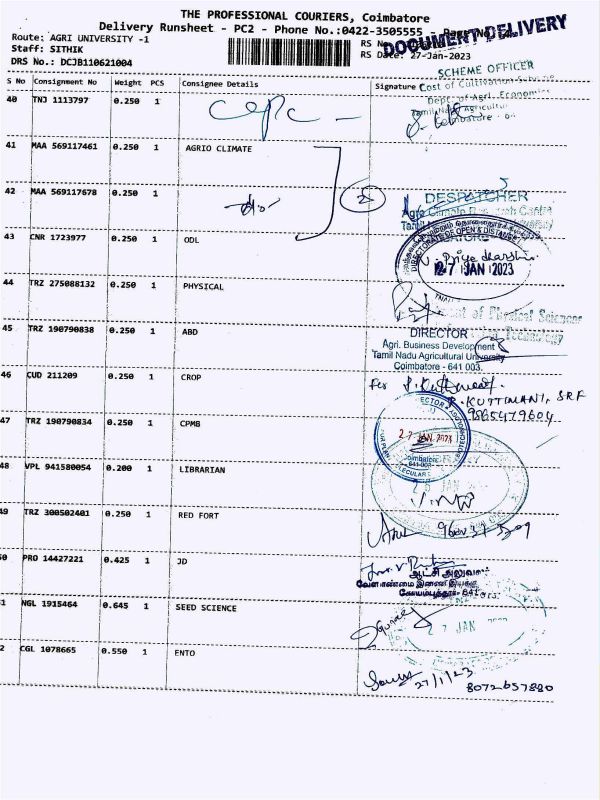 THE PROFESSIONAL COURIERS, Coimbatore
Delivery Runsheet - PC2 - Phone No.:0422-3505555 - Page No.
DOCUMENT DELIVERY
Route: AGRI UNIVERSITY -1
Staff: SITHIK
DRS No.: DCJB110621004
RS No
RS Date: 27-Jan-2023
S No Consignment No Weight PCS Consignee Details Signature
SCHEME OFFICER
Cost of Cultivation Scheme
Dept. of Agri. Economics
Tamil Nadu Agricultural
Coimbatore
40 TNJ 1113797 0.250 1
41 MAA 569117461 0.250 1 AGRIO CLIMATE
42 MAA 569117678 0.250 1
2
DESPATCHER
Agro Climate Research Centre
Tamil University
43 CNR 1723977 0.250 1 ODL
DIRECTORATE OF OPEN & DISTANCE
V. Priyedarshi
27 JAN 2023
44 TRZ 275088132 0.250 1 PHYSICAL
of Physical Science
Technology
45 TRZ 190790838 0.250 1 ABD
DIRECTOR
Agri. Business Development
Tamil Nadu Agricultural University
Coimbatore - 641 003.
46 CUD 211209 0.250 1 CROP
For
R. KUTTIMANI, SRF
9865479604
47 TRZ 190790834 0.250 1 CPMB
27 JAN 2023
Coimbatore
641 003
48 VPL 941580054 0.200 1 LIBRARIAN
JAN
49 TRZ 300502401 0.250 1 RED FORT
50 PRO 14427221 0.425 1 JD
ஆட்சி அலுவலர்
வேளாண்மை இணை இயக்கு
கோயம்புத்தூர்- 641
1 NGL 1915464 0.645 1 SEED SCIENCE
27 JAN
2 CGL 1078665 0.550 1 ENTO
27/1/23
8072657880